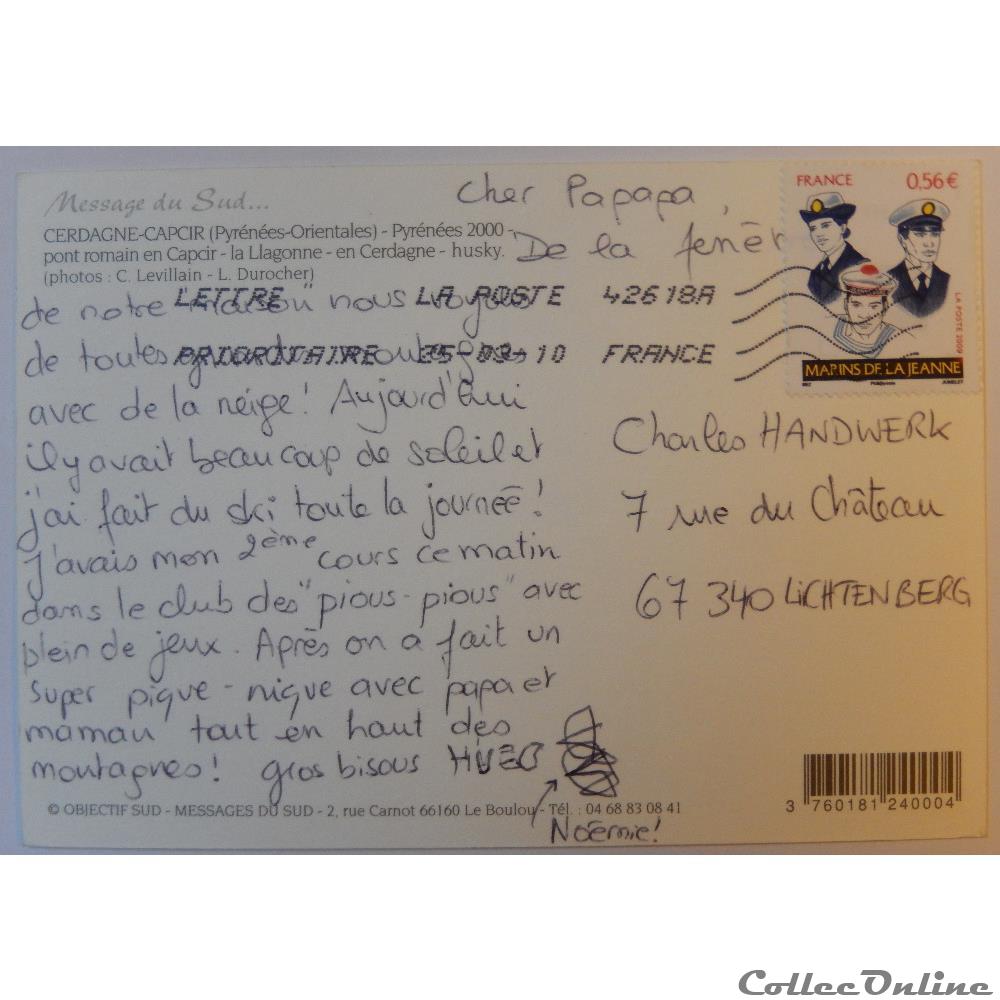 Message du Sud...
CERDAGNE-CAPCIR (Pyrénées-Orientales) - Pyrénées 2000 -
pont romain en Capcir - la Llagonne - en Cerdagne - husky.
(photos : C. Levillain - L. Durocher)
FRANCE 0,56€
LA POSTE 2009
MARINS DE LA JEANNE
Phil@poste JUMELET
LETTRE LA POSTE 42618A
PRIORITAIRE 25-02-10 FRANCE
Cher Papapa,
De la fenêtr
de notre "maison" nous voyons
de toutes
avec de la neige! Aujourd'hui
il y avait beaucoup de soleil et
j'ai fait du ski toute la journée!
J'avais mon 2ème cours ce matin
dans le club des "pious-pious" avec
plein de jeux. Après on a fait un
super pique-nique avec papa et
maman tout en haut des
montagnes! gros bisous HUGO
Noémie!
Charles HANDWERK
7 rue du Château
67 340 LiCHTENBERG
© OBJECTIF SUD - MESSAGES DU SUD - 2, rue Carnot 66160 Le Boulou - Tél. : 04 68 83 08 41
3 760181 240004
CollecOnline